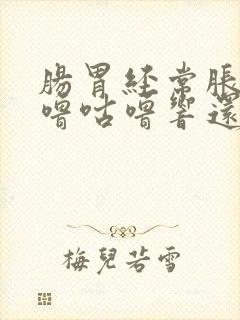 腸胃經常脹
嚕咕嚕響還
梅兒若雪